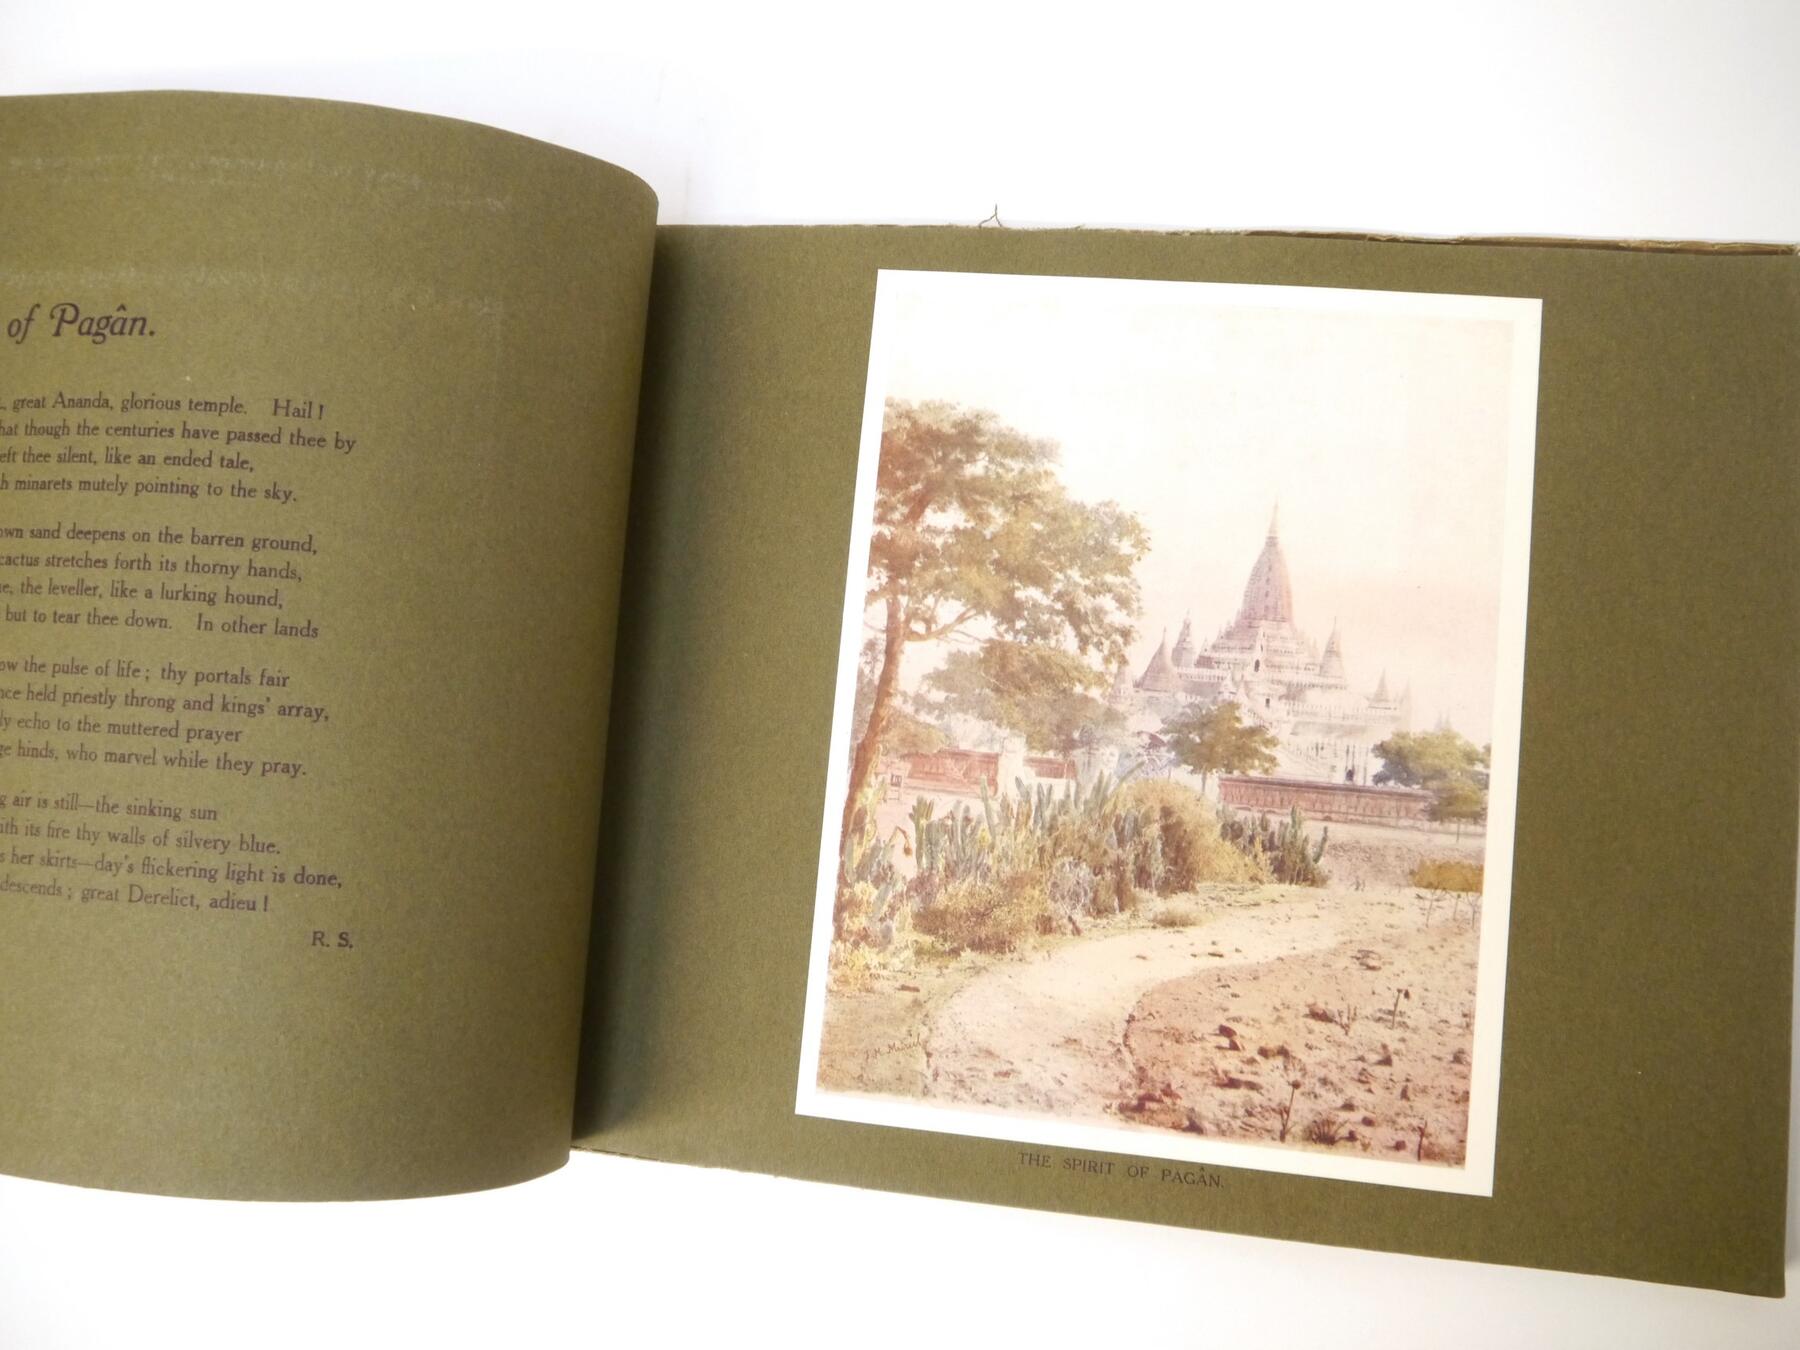 of Pagân.
great Ananda, glorious temple. Hail!
though the centuries have passed thee by
thee silent, like an ended tale,
minarets mutely pointing to the sky.
sand deepens on the barren ground,
cactus stretches forth its thorny hands,
the leveller, like a lurking hound,
but to tear thee down. In other lands
the pulse of life; thy portals fair
held priestly throng and kings' array,
echo to the muttered prayer
hinds, who marvel while they pray.
air is still—the sinking sun
its fire thy walls of silvery blue.
her skirts—day's flickering light is done,
descends; great Derelict, adieu!
R. S.
THE SPIRIT OF PAGÂN.